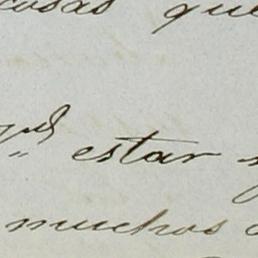 cosas que
estar
muchos